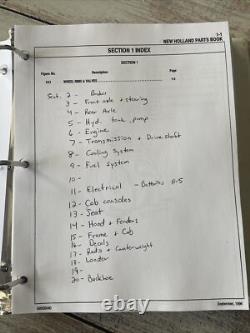 1-1
NEW HOLLAND PARTS BOOK
SECTION 1 INDEX
SECTION 1
Figure No. Description Page
WHEEL RIMS & VALVES
Sect. 2 - Brakes
3 - Front axle + steering
4 - Rear Axle
5 - Hyd. tank, pump
6 - Engine
7 - Transmission + Drive shaft
8 - Cooling System
9 - Fuel System
10 -
11 - Electrical - Batteries 11-5
12 - Cab consoles
13 - Seat
14 - Hood + Fenders
15 - Frame + Cab
16 - Decals
17 - Rads + Counterweight
18 - Loader
19 -
20 - Backhoe
September, 1996
© ebay